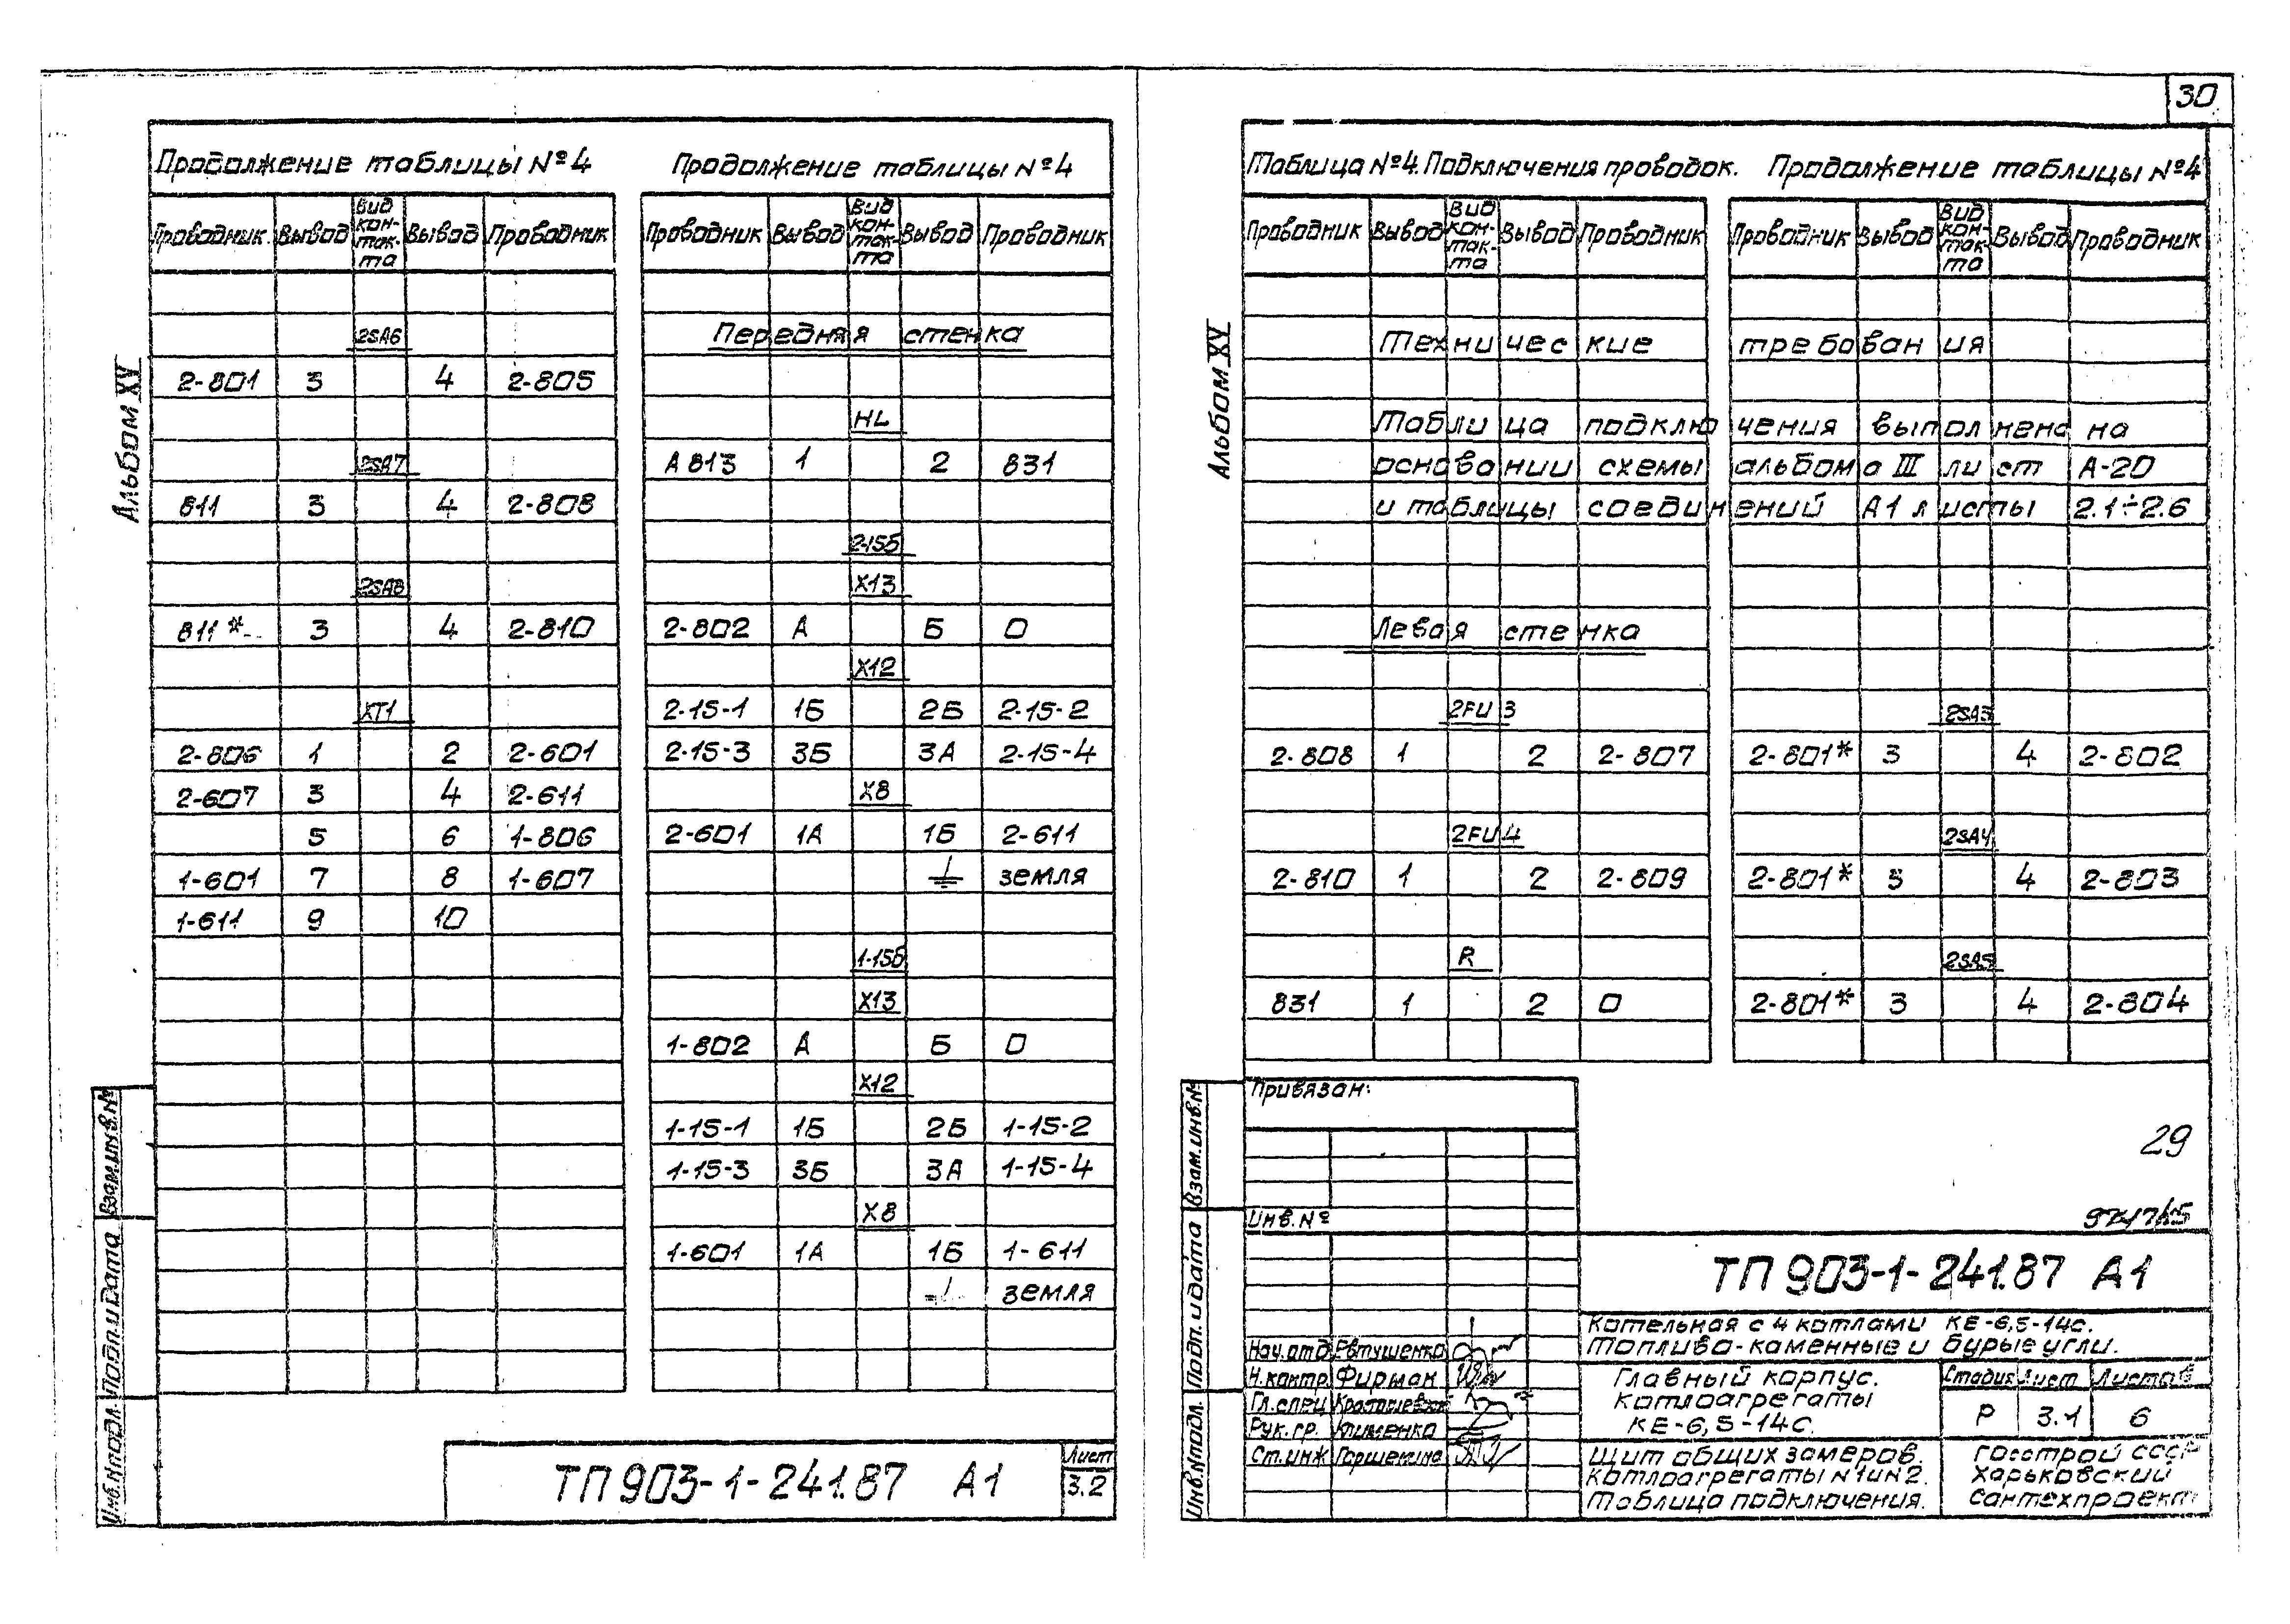 Продолжение таблицы №4
Проводник Вывод Вид кон-так-та Вывод Проводник
2SA6
2-801 3 4 2-805
2SA7
811 3 4 2-808
2SA8
811* 3 4 2-810
XT1
2-806 1 2 2-601
2-607 3 4 2-611
5 6 1-806
1-601 7 8 1-607
1-611 9 10
Продолжение таблицы №4
Проводник Вывод Вид кон-так-та Вывод Проводник
Передняя стенка
HL
А813 1 2 831
2-15б
X13
2-802 А Б 0
X12
2-15-1 1Б 2Б 2-15-2
2-15-3 3Б 3А 2-15-4
X8
2-601 1А 1Б 2-611
земля
1-15б
X13
1-802 А Б 0
X12
1-15-1 1Б 2Б 1-15-2
1-15-3 3Б 3А 1-15-4
X8
1-601 1А 1Б 1-611
земля
Альбом XV
Взам.инв.№
Подп. и дата
Инв.№подл.
ТП 903-1-241.87 А1
Лист
3.2
30
Таблица №4. Подключения проводок.
Продолжение таблицы №4
Проводник Вывод Вид кон-так-та Вывод Проводник
Проводник Вывод Вид кон-так-та Вывод Проводник
Технические требования
Таблица подключения выполнена на
основании схемы альбома III лист А-20
и таблицы соединений А1 листы 2.1÷2.6
Левая стенка
2FU3
2-808 1 2 2-807
2FU4
2-810 1 2 2-809
R
831 1 2 0
2SA3
2-801* 3 4 2-802
2SA4
2-801* 3 4 2-803
2SA5
2-801* 3 4 2-804
Альбом XV
Взам.инв.№
Подп. и дата
Инв.№подл.
Привязан:
Инв.№
29
ТП 903-1-241.87 А1
Котельная с 4 котлами КЕ-6,5-14с.
Топливо-каменные и бурые угли.
Нач.отд. Евтушенко
Н.контр. Фирман
Гл.спец.
Рук.гр. Клименко
Ст.инж. Горшенина
Главный корпус.
Котлоагрегаты
КЕ-6,5-14С.
Стадия Лист Листов
Р 3.1 6
Щит общих замеров.
Котлоагрегаты №1и№2.
Таблица подключения.
Госстрой СССР
Харьковский
Сантехпроект